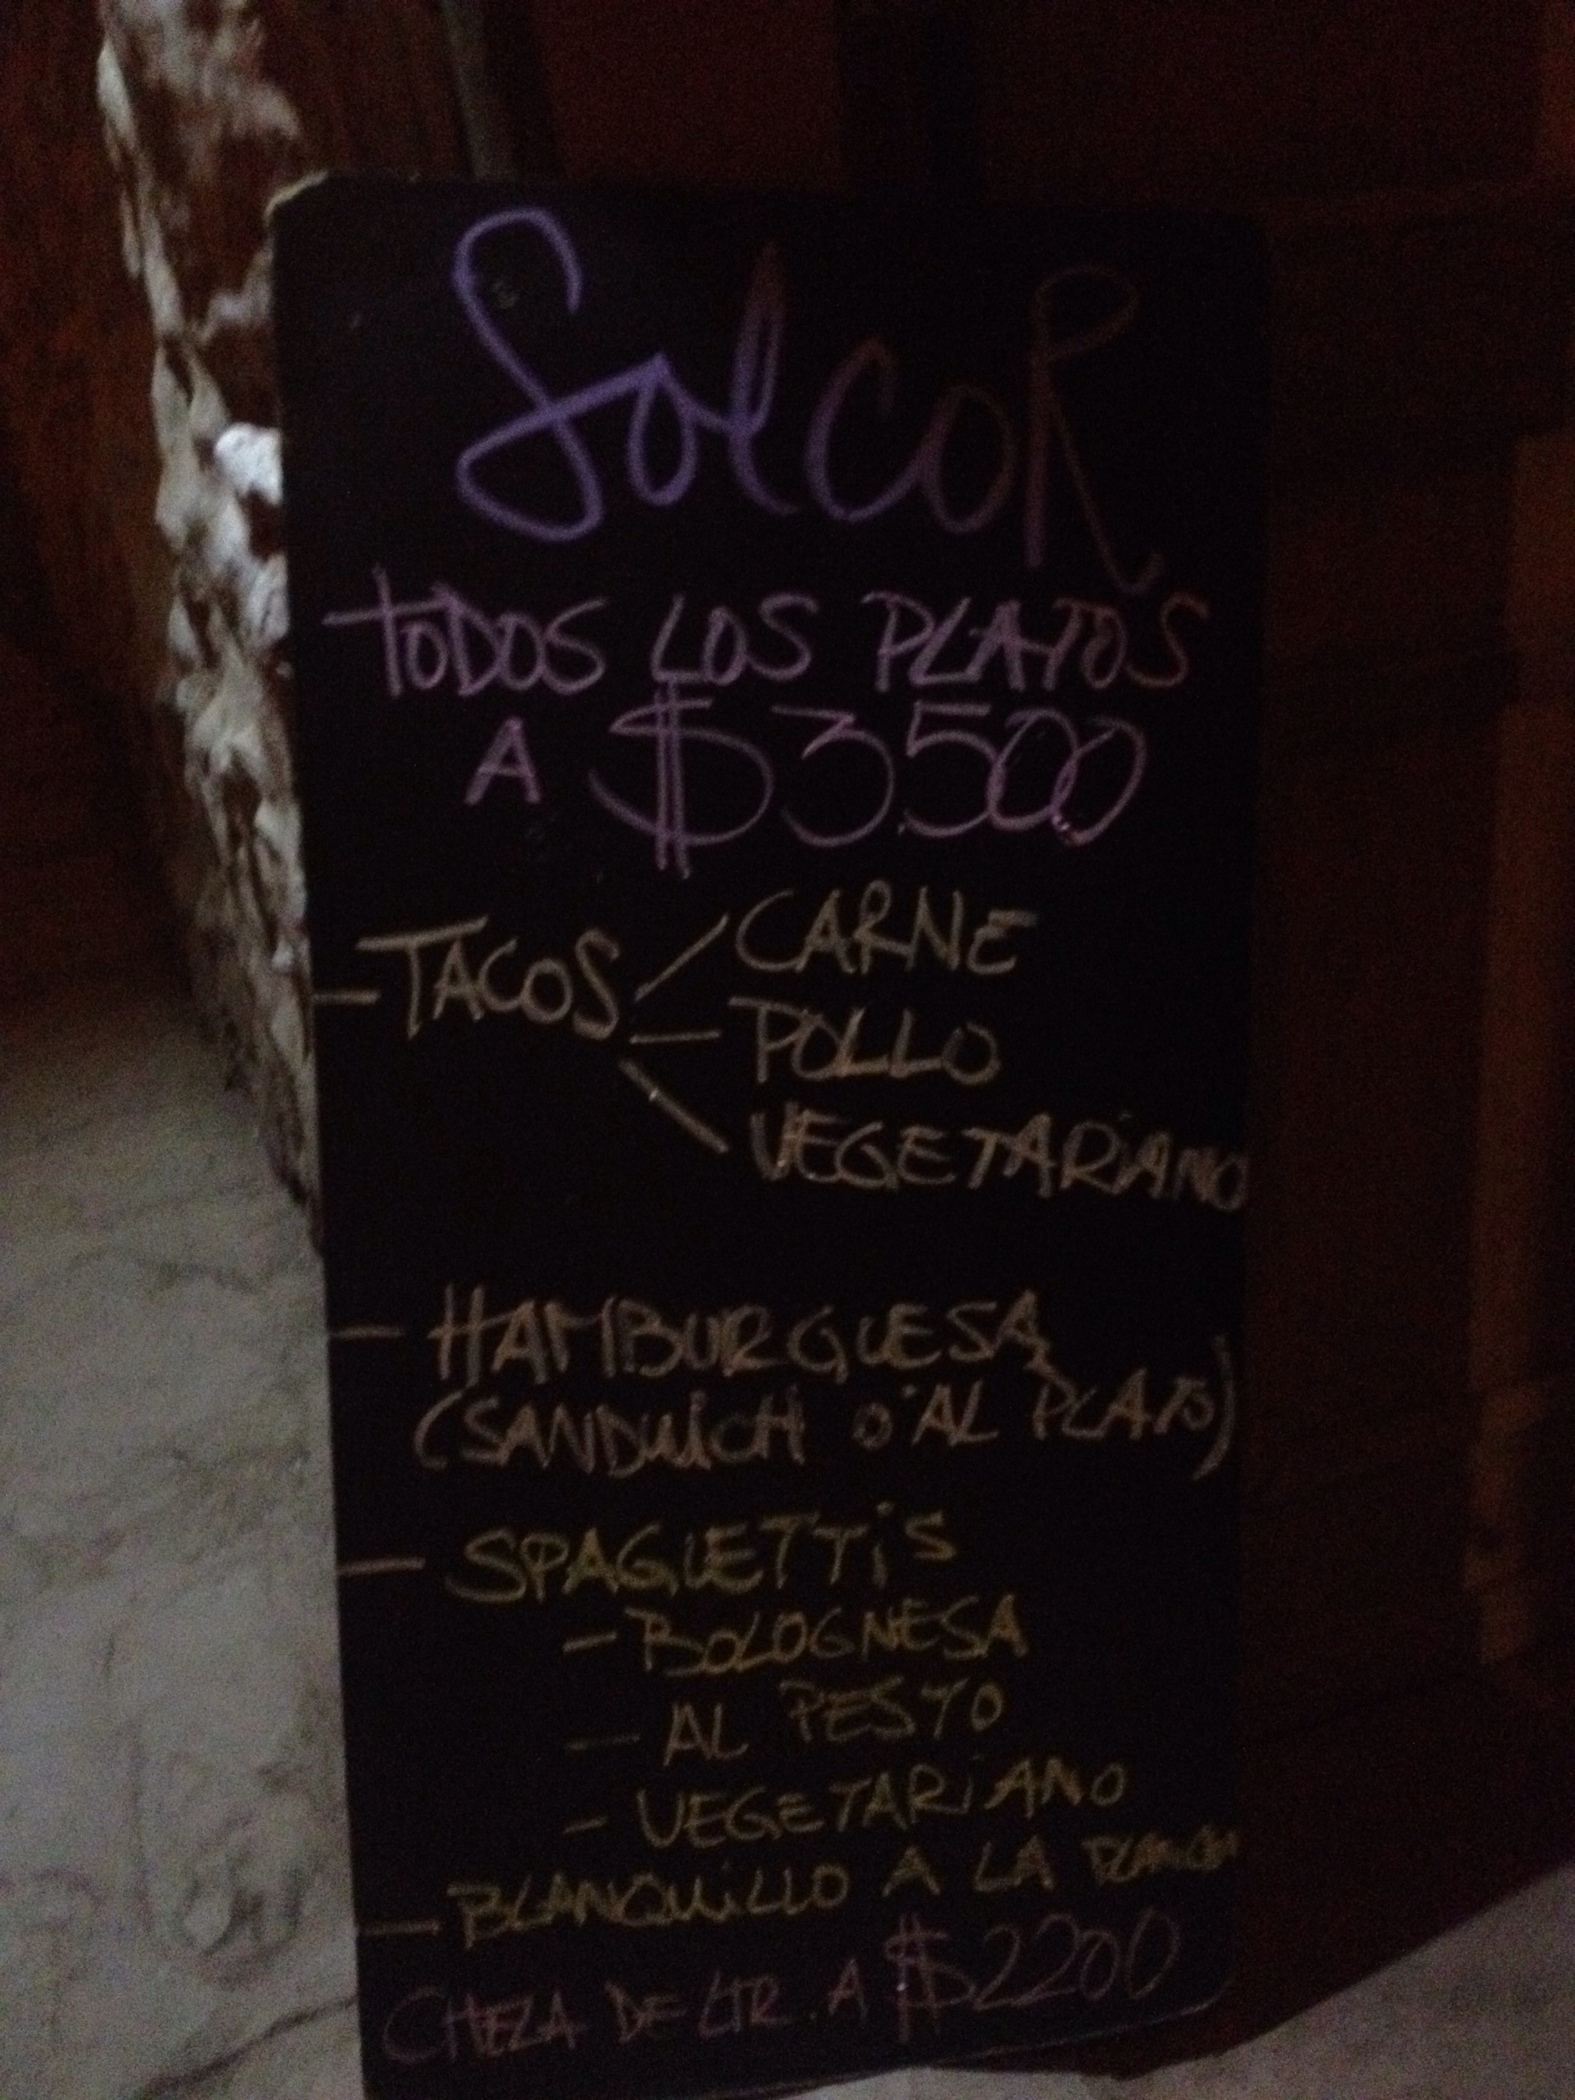 Solcor
TODOS LOS PLATOS
A $3.500
- TACOS - CARNE
- POLLO
- VEGETARIANO
- HAMBURGUESA
(SANDWICH O AL PLATO)
- SPAGUETTIS
- BOLOGNESA
- AL PESTO
- VEGETARIANO
- BLANQUILLO A LA PLANCHA
CHELA DE LTR. A $2200